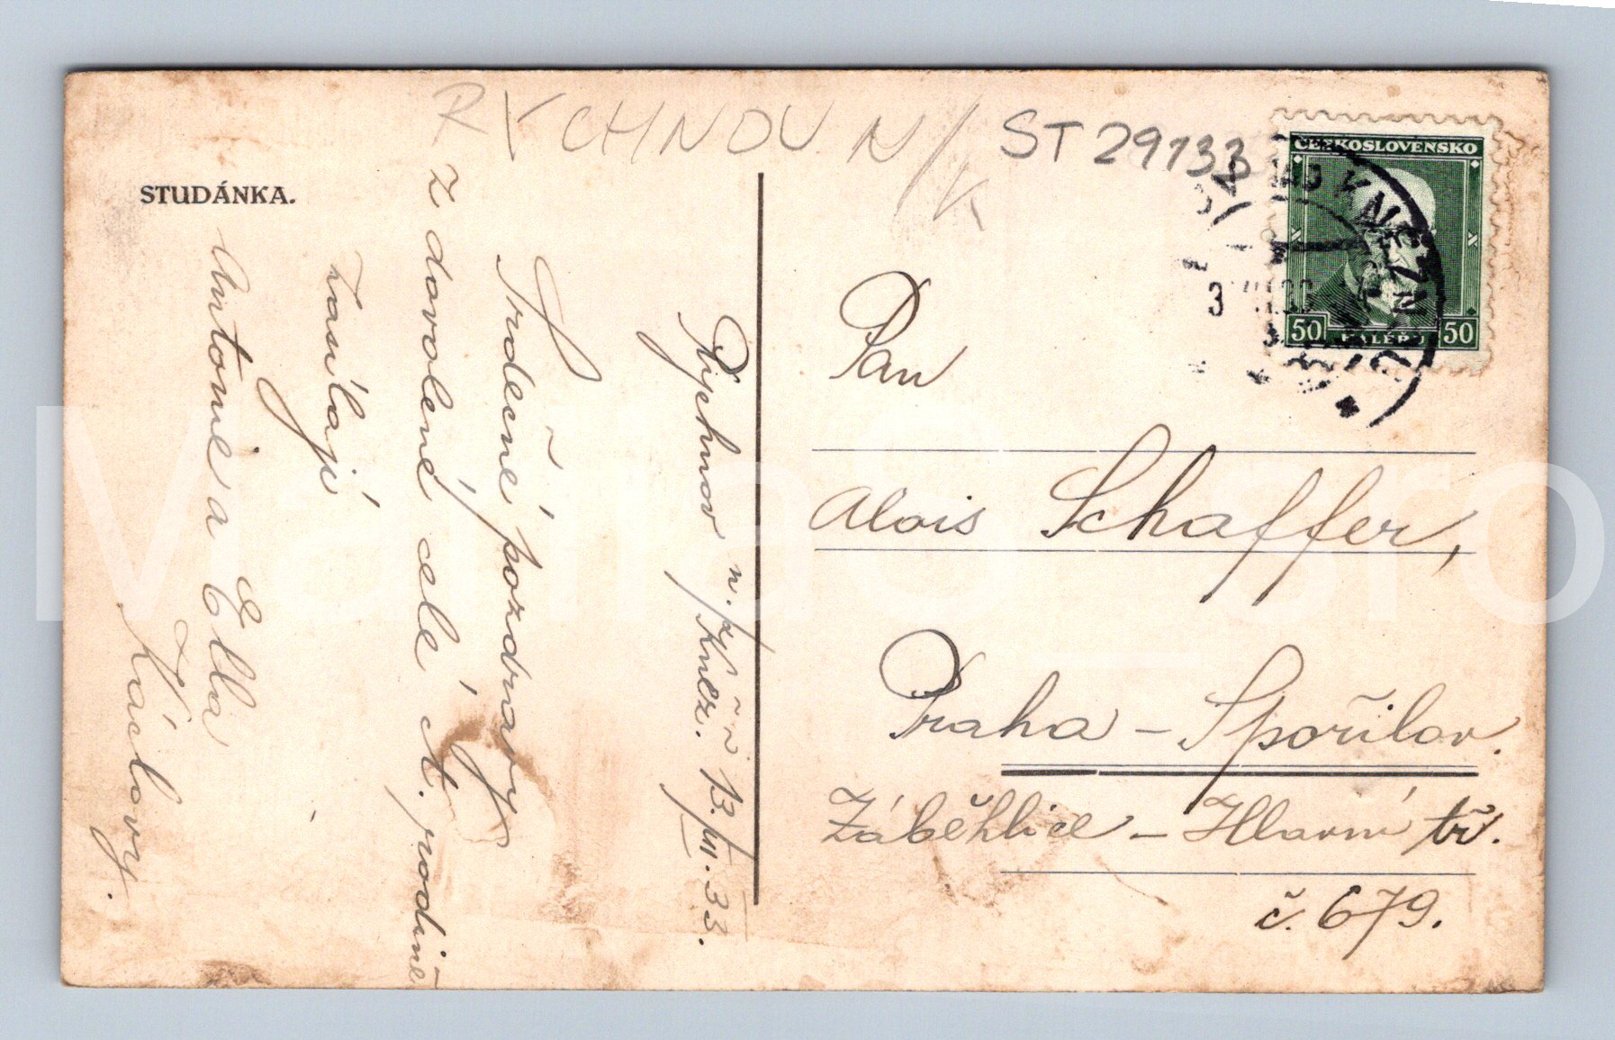 RYCHNOV N/K
ST 29133
STUDÁNKA.
Rychnov n./Kněž. 13./VII.33.
Srdečné pozdravy
z dovolené celé ct. rodině
zasílají
Antonie a Ella
Václavy.
ČESKOSLOVENSKO
50 HALÉŘŮ 50
NAD KNĚŽNOU
Pan
Alois Schaffer,
Praha - Spořilov.
Záběhlice - Hlavní tř.
č. 679.